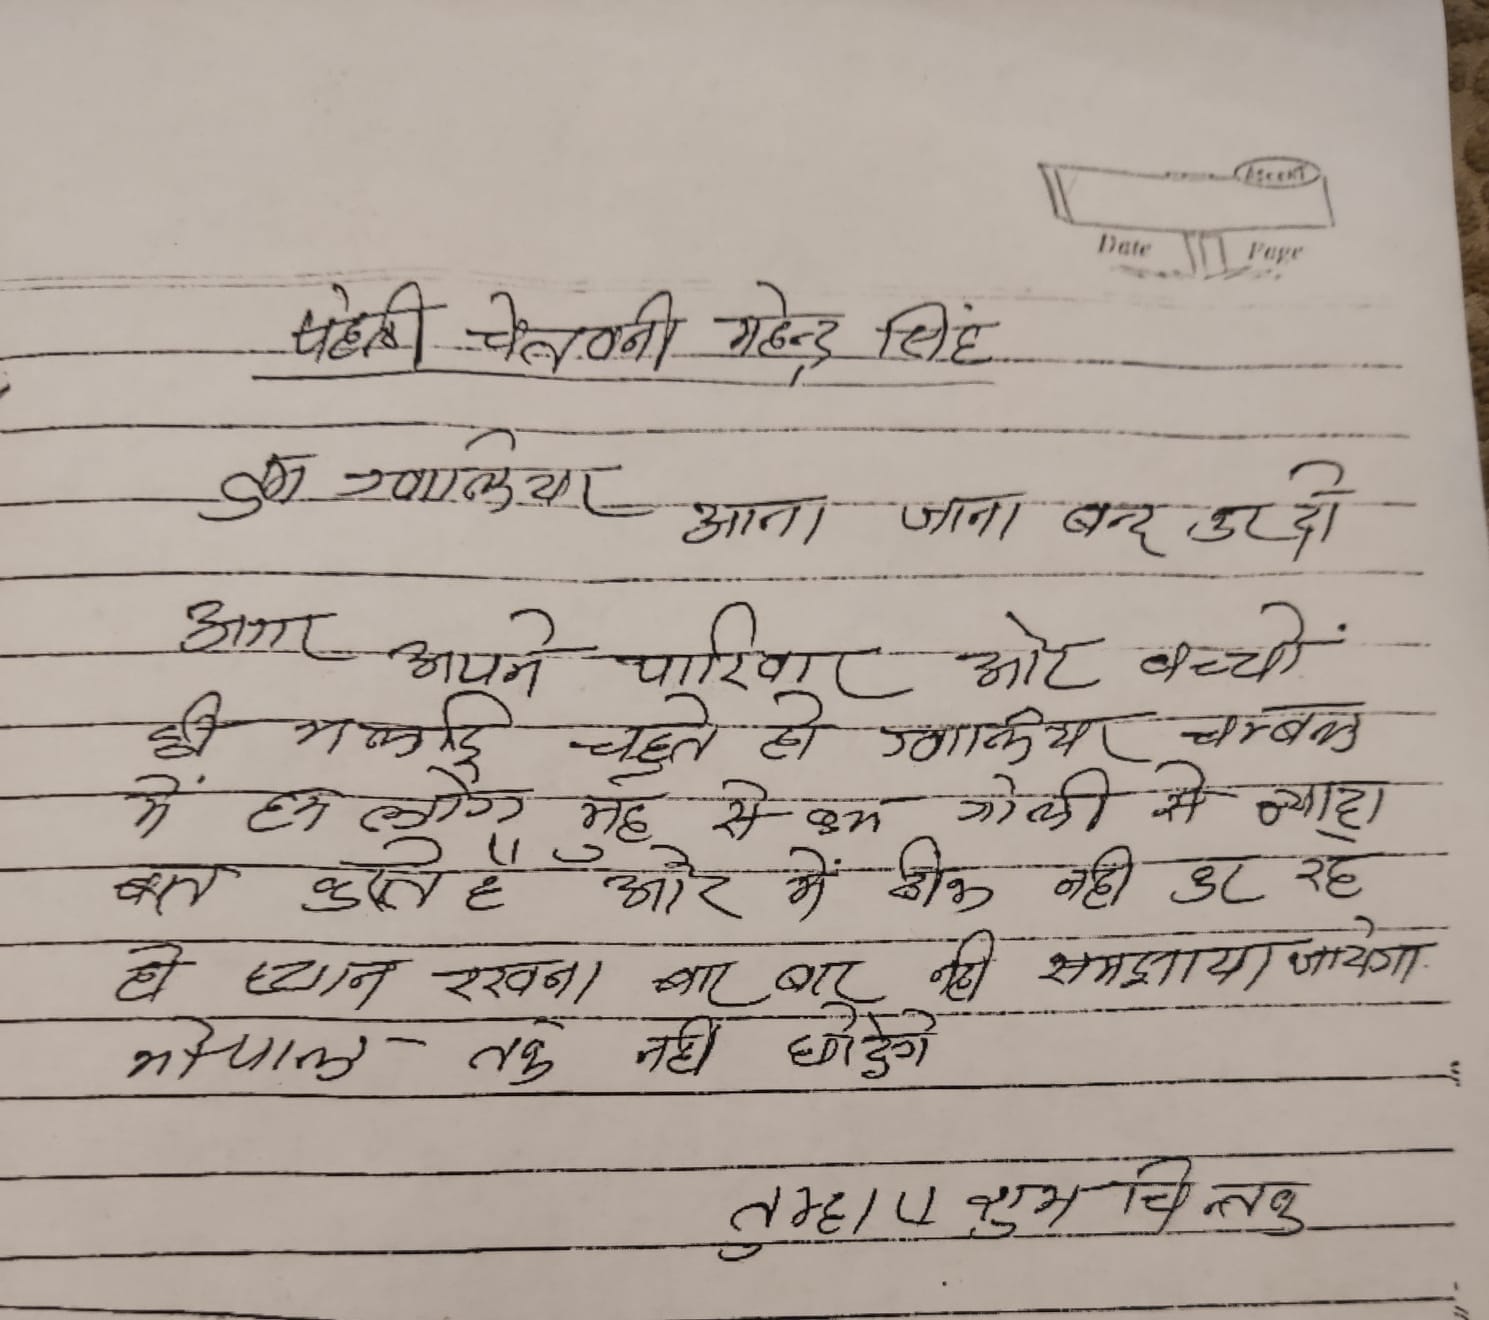 ASCENT
Date Page
पहेली चेतवनी महेन्द्र सिंह
तुम ग्वालियर आना जाना बन्द कर दो
अगर अपने परिवार ओर बच्चों
की भलाई चहते हो ग्वालियर चम्बल
में हम लोग मुंह से कम गोली से ज्यादा
बात करते है ओर में ठीक नही कर रहे
हो ध्यान रखना बार बार नही समझाया जायेगा
भोपाल तक नही छोडेगे
तुम्हारा शुभ चिन्तक